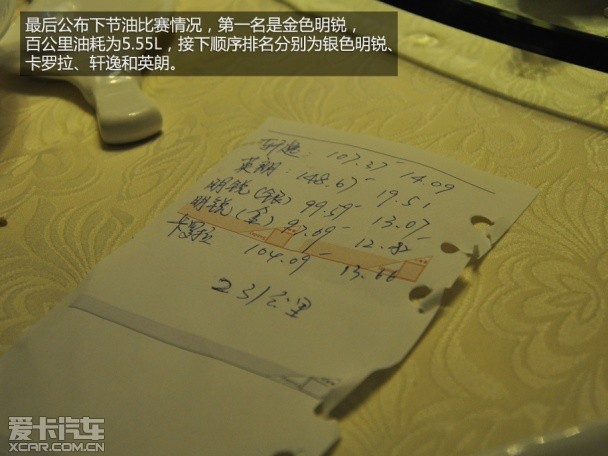 最后公布下节油比赛情况，第一名是金色明锐，
百公里油耗为5.55L，接下顺序排名分别为银色明锐、
卡罗拉、轩逸和英朗。
轩逸: 107.27- 14.09
英朗: 148.67- 19.51
明锐(银) 99.59- 13.07
明锐(金) 97.69- 12.82
卡罗拉 104.09- 13.66
231公里
爱卡汽车
XCAR.COM.CN